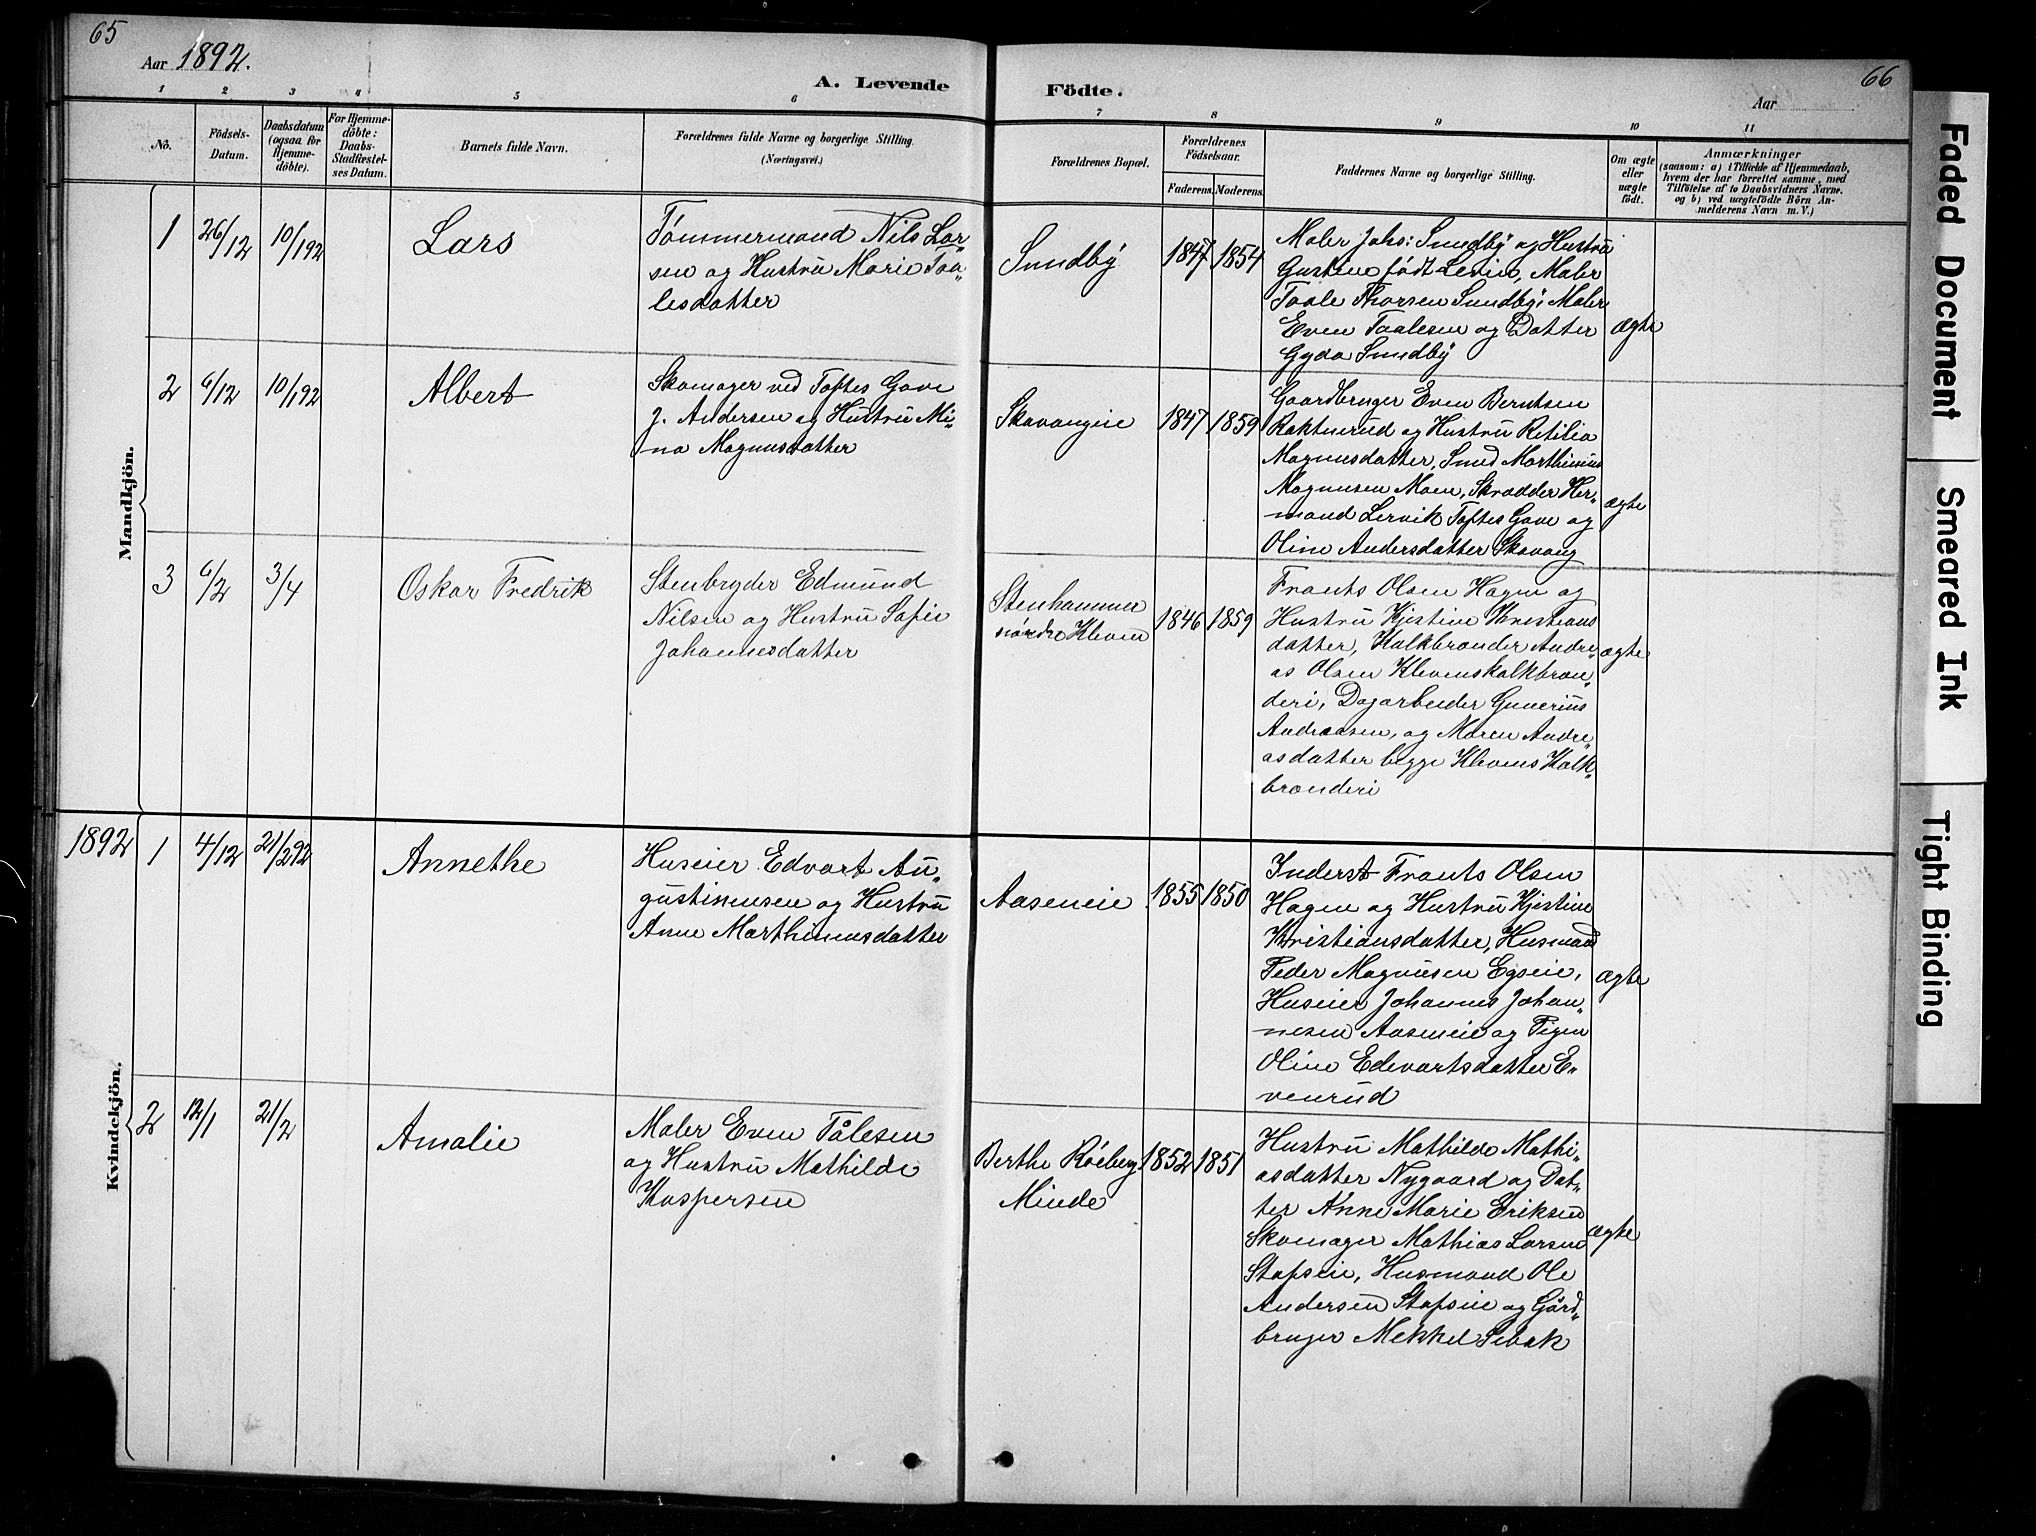 65
Aar 1892.
A. Levende Födte.
66
Aar
1 2 3 4 5 6 7 8 9 10 11
No.
Födsels-
Datum.
Daabsdatum
(ogsaa for
Hjemme-
döbte).
For Hjemme-
döbte:
Daabs-
Stadfæstel-
ses Datum.
Barnets fulde Navn.
Forældrenes fulde Navne og borgerlige Stilling.
(Næringsvei.)
Forældrenes Bopæl.
Forældrenes
Födselsaar.
Faderens. Moderens.
Faddernes Navne og borgerlige Stilling.
Om ægte
eller
uægte
födt.
Anmærkninger
(saasom: a) i Tilfælde af Hjemmedaab,
hvem der har forrettet samme, med
Tilföielse af to Daabsvidners Navne.
og b) ved uægtefödte Börn An-
melderens Navn m. V.)
Mandkjön.
1
26/12
10/192
Lars
Tömmermand Nils Lar„
sen og Hustru Marie Taa„
lesdatter
Sundby
1847
1854
Maler Johs: Sundby og Hustru
Gustava født Levin, Maler
Taale Thorsen Sundby, Maler
Even Taalesen og Datter
Gyda Sundby
ægte
2
6/12
10/192
Albert
Skomager ved Toftes Gave
J. Andersen og Hustru Mi„
na Magnusdatter
Skavangeie
1847
1859
Gaardbruger Even Berntsen
Raknerud og Hustru Ritilia
Magnusdatter, Smed Marthinius
Magnusen Moen, Skrædder Her„
mand Lervik Toftes Gave og
Oline Andersdatter Skavang
ægte
3
6/2
3/4
Oskar Fredrik
Stenbryder Edmund
Nilsen og Hustru Sofie
Johannesdatter
Stenhammer
nordre Kleven
1846
1859
Frants Olsen Hagen og
Hustru Kjestine Kristians
datter, Kalkbrænder Andre„
as Olsen Klevenskalkbræn„
deri, Dagarbeider Gunerius
Andreasen, og Maren Andre„
asdatter begge Klevens Kalk„
brænderi
ægte
1892
Kvindekjön.
1
4/12
21/292
Annethe
Huseier Edvart Au„
gustinusen og Hustru
Anne Marthinusdatter
Aaseneie
1855
1850
Inderst Frants Olsen
Hagen og Hustru Kjestine
Kristiansdatter, Husmand
Peder Magnusen Egseie,
Huseier Johannes Johan„
nesen Aaseneie og Pigen
Oline Edevartsdatter E„
venrud
ægte
2
12/1
21/2
Amalie
Maler Even Tålesen
og Hustru Mathilde
Kaspersen
Berthe Röeberg
Minde
1852
1851
Hustru Mathilde Mathi„
asdatter Nygaard og Dat„
ter Anne Marie Eriksen
Skomager Mathias Larsen
Stafseie, Husmand Ole
Andersen Stafseie og Gård„
bruger Mekkel Sebak
ægte
Faded Document
Smeared Ink
Tight Binding